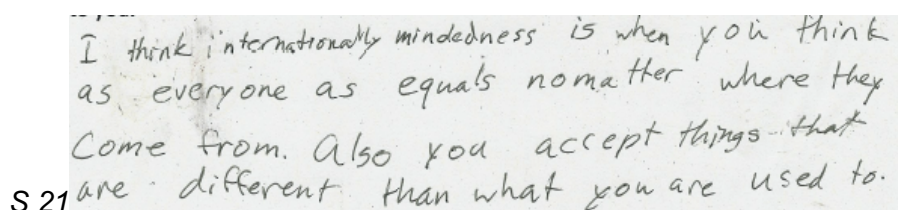 I think internationally mindedness is when you think
as everyone as equals nomatther where they
Come from. Also you accept things that
S 21 are different than what you are used to.